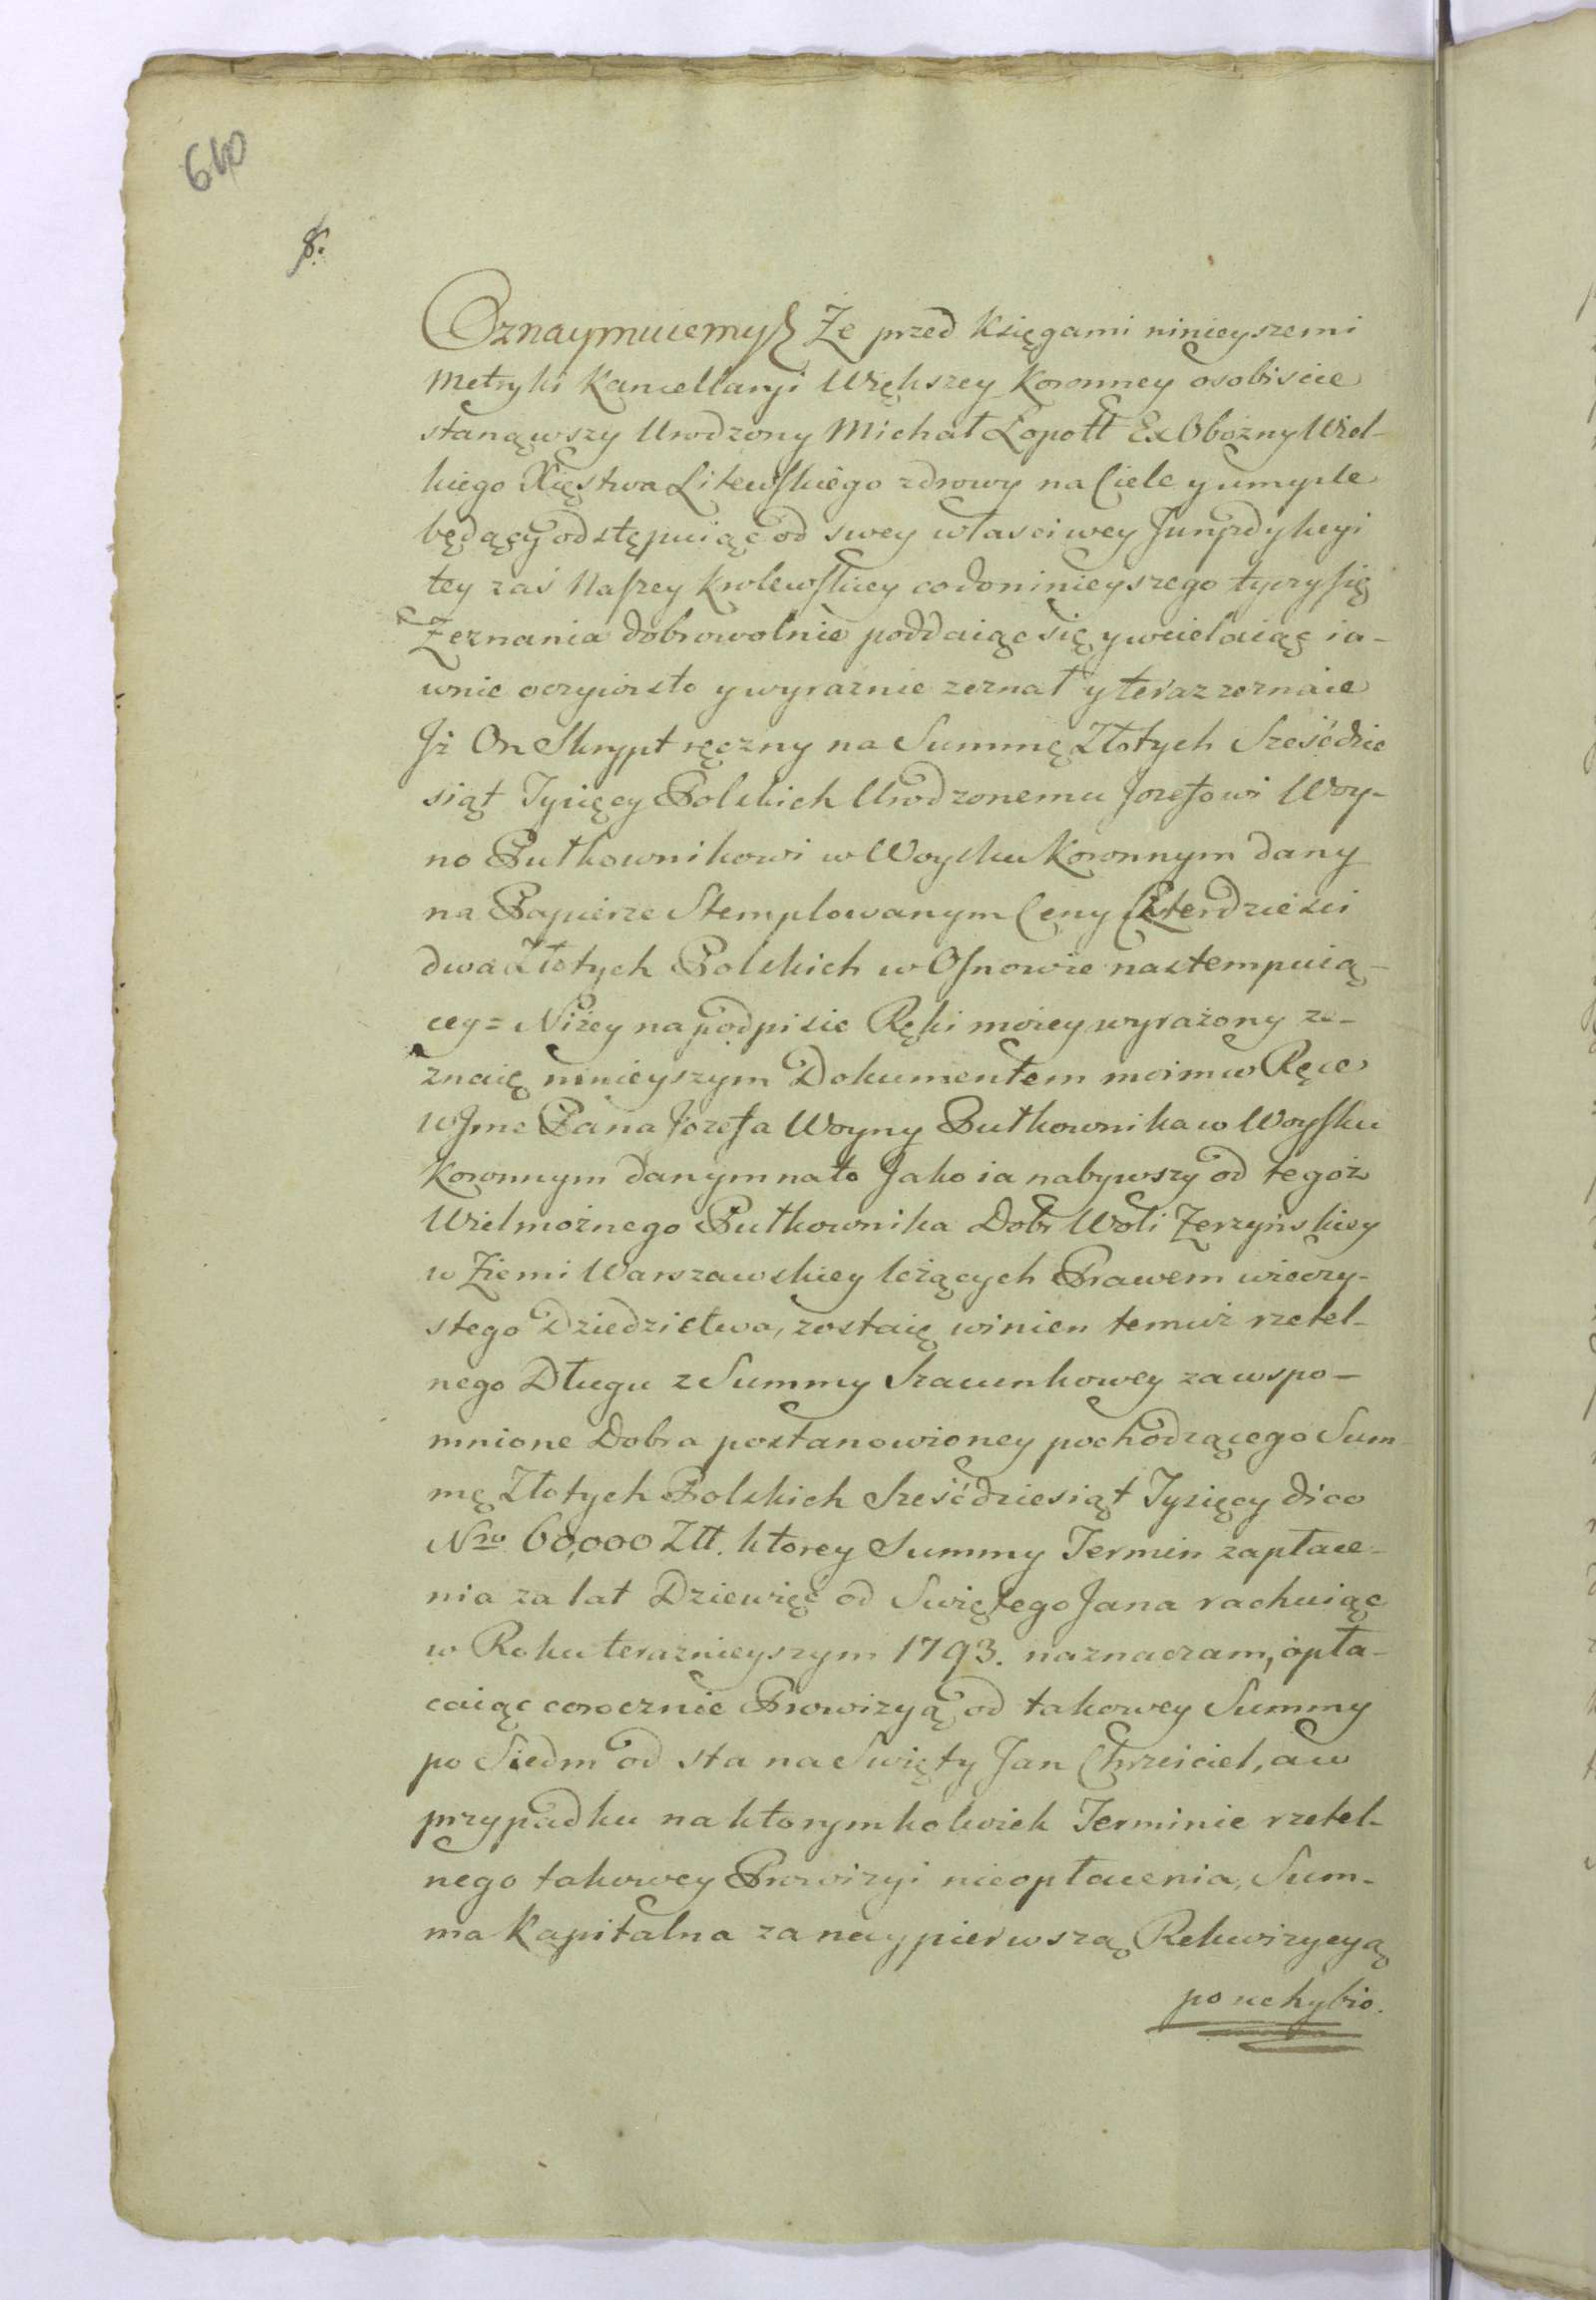 640
8.
Oznaymuiemy Że przed Księgami ninieyszemi
Metryki Kancellaryi Większey Koronney osobiscie
stanąwszy Urodzony Michał Łopott Ex Oboźny Wiel-
kiego Xięstwa Litewskiego zdrowy na Ciele y umysle
będący odstępuiąc od swey własciwey Juryzdykcyi
tey zaś Naszey Krolewskiey co do ninieyszego tyczy się
Zeznania dobrowolnie poddaiąc się y wcielaiąc ia-
wnie oczywisto y wyraznie zeznał y teraz zeznaie
Jż On Skrypt ręczny na Summę Złotych Sześćdzie
siąt Tysięcy Polskich Urodzonemu Jozefowi Woy-
no Pułkownikowi w Woysku Koronnym dany
na Papierze Stemplowanym Ceny Czterdziesci
dwa Złotych Polskich w Osnowie nastempuią-
cey = Niżey na podpisie Ręki moiey wyrażony ze-
znaię ninieyszym Dokumentem moim w Ręce
W Jme Pana Jozefa Woyny Pułkownika w Woysku
Koronnym danym na to Jako ia nabywszy od tegoż
Wielmożnego Pułkownika Dobr Woli Zerzyńskiey
w Ziemi Warszawskiey leżących Prawem wieczy-
stego Dziedzictwa, zostaię winien temuż rzetel-
nego Długu z Summy Szacunkowey za wspo-
mnione Dobra postanowioney pochodzącego Sum
mę Złotych Polskich Sześćdziesiąt Tysięcy dico
Nro 60,000 Złł. ktorey Summy Termin zapłace-
nia za lat Dziewięć od Swiętego Jana rachuiąc
w Roku teraznieyszym 1793. naznaczam, opła-
caiąc corocznie Prowizyą od takowey Summy
po Siedm od sta na Swięty Jan Chrzciciel, a w
przypadku na ktorymkolwiek Terminie rzetel-
nego takowey Prowizyi nieopłacenia, Sum-
ma Kapitalna za naypierwszą Rekwizycyą
po uchybio.